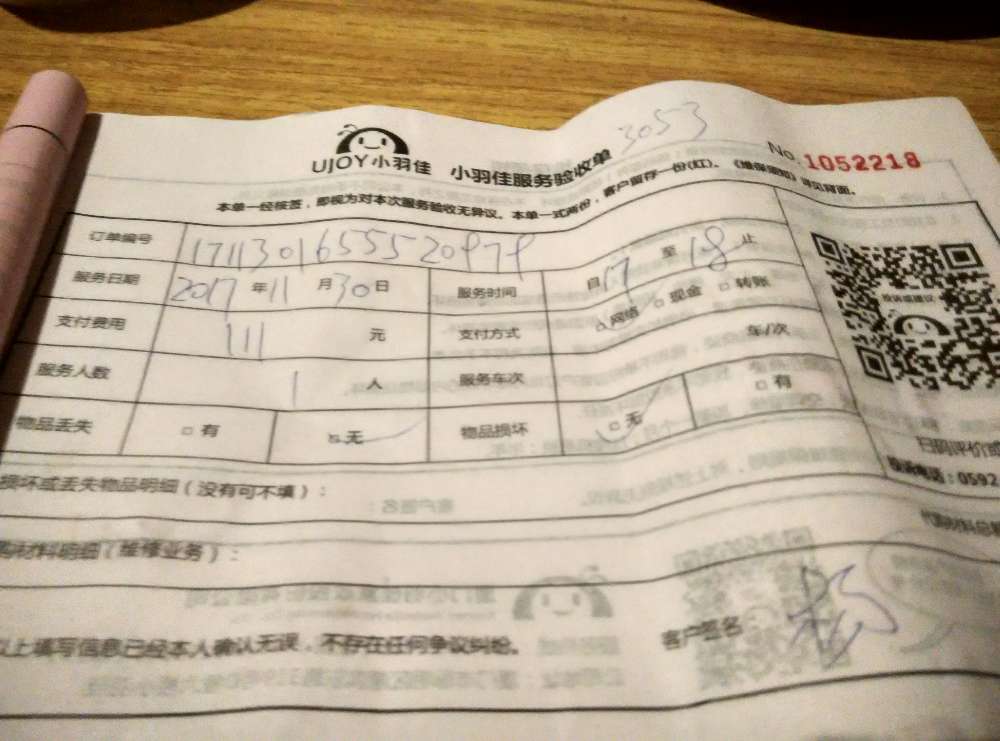 3053
UJOY小羽佳 小羽佳服务验收单 No. 1052218
本单一经核签，即视为对本次服务验收无异议。本单一式两份，客户留存一份(红)。《维保须知》详见背面。
订单编号 1711301655520979
服务日期 2017 年 11 月 30 日 服务时间 自 17 至 18 止
支付费用 111 元 支付方式 □网络 □现金 □转账
服务人数 1 人 服务车次 年/次
物品丢失 □有 □无 物品损坏 □无 □有
投诉或建议
扫码评价或
投诉电话：0592
损坏或丢失物品明细（没有可不填）：
代购材料总额
购材料明细（维修业务）：
以上填写信息已经本人确认无误，不存在任何争议纠纷。 客户签名